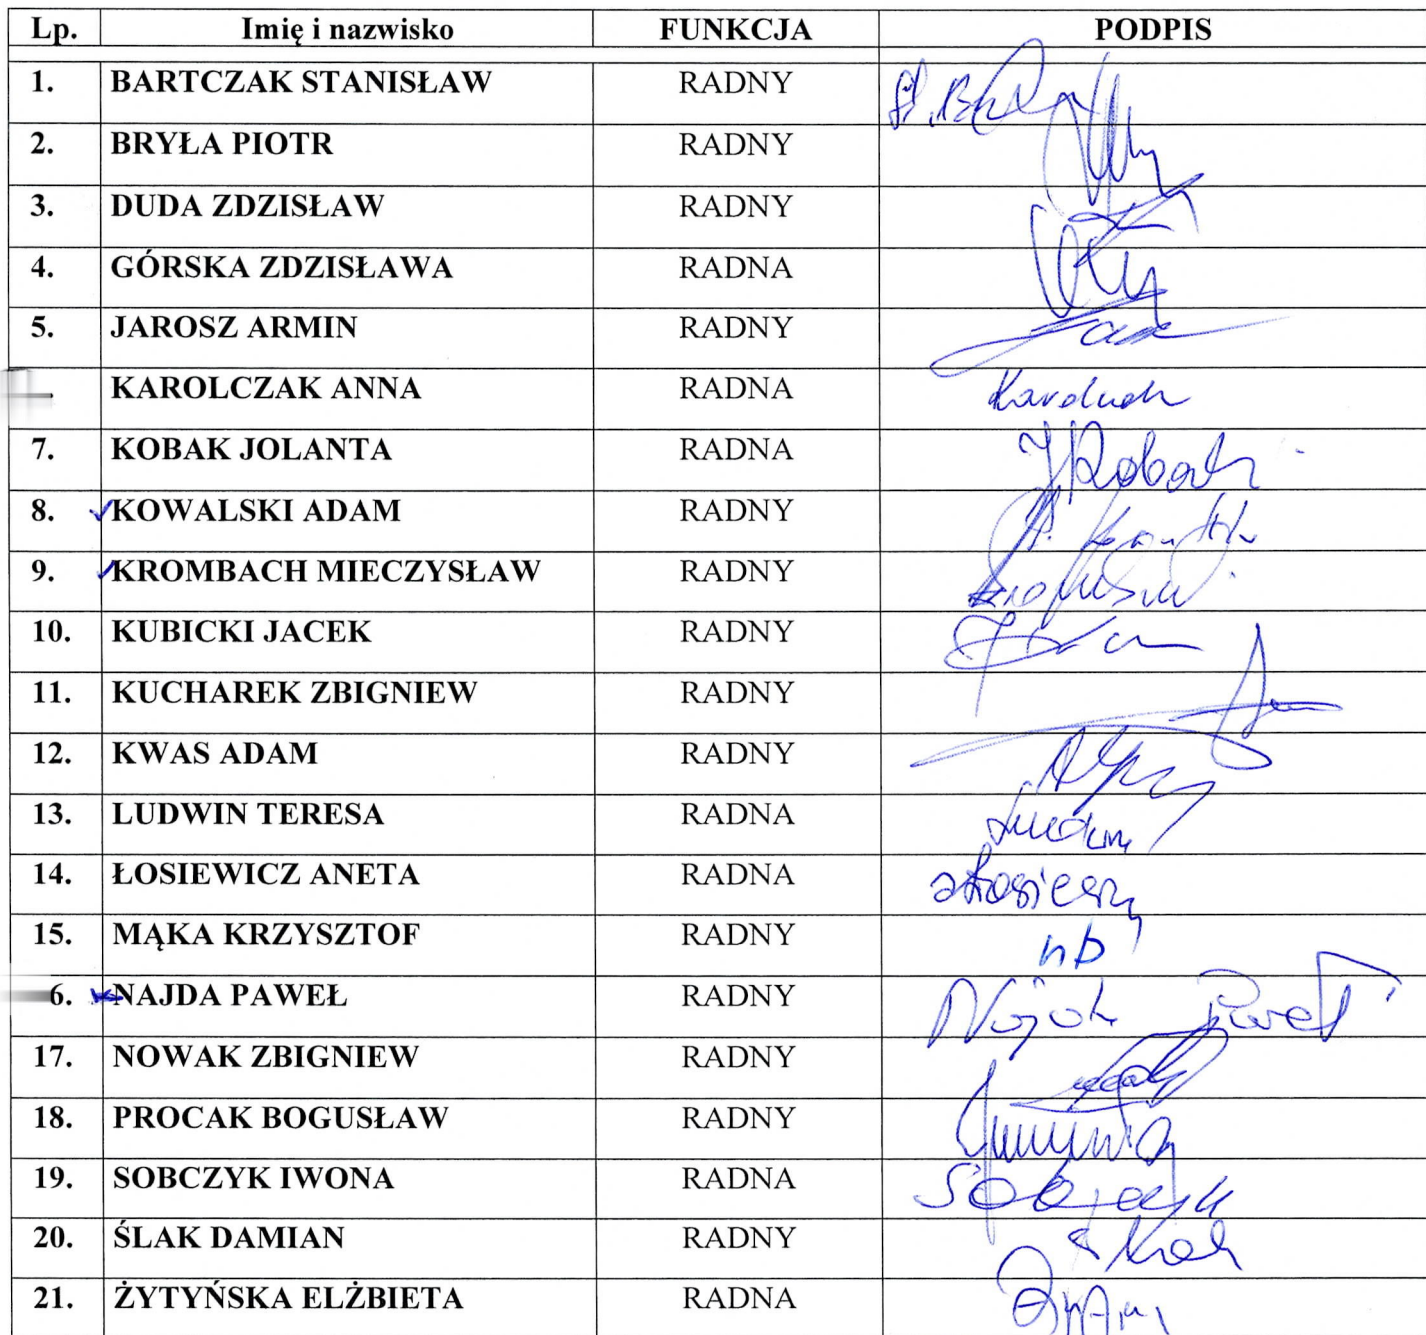 Lp. Imię i nazwisko FUNKCJA PODPIS
1. BARTCZAK STANISŁAW RADNY
2. BRYŁA PIOTR RADNY
3. DUDA ZDZISŁAW RADNY
4. GÓRSKA ZDZISŁAWA RADNA
5. JAROSZ ARMIN RADNY
KAROLCZAK ANNA RADNA
7. KOBAK JOLANTA RADNA JKobak
8. KOWALSKI ADAM RADNY
9. KROMBACH MIECZYSŁAW RADNY
10. KUBICKI JACEK RADNY
11. KUCHAREK ZBIGNIEW RADNY
12. KWAS ADAM RADNY
13. LUDWIN TERESA RADNA
14. ŁOSIEWICZ ANETA RADNA
15. MĄKA KRZYSZTOF RADNY nb
6. NAJDA PAWEŁ RADNY Najda Paweł
17. NOWAK ZBIGNIEW RADNY
18. PROCAK BOGUSŁAW RADNY
19. SOBCZYK IWONA RADNA Sobczyk
20. ŚLAK DAMIAN RADNY
21. ŻYTYŃSKA ELŻBIETA RADNA